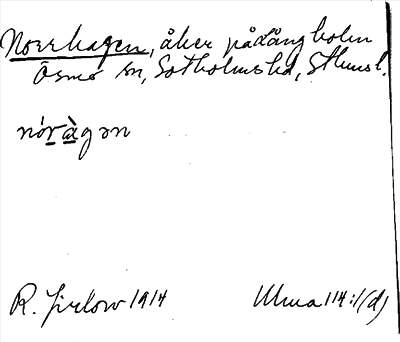 Norrhagen, åker på Långholm
Ösmo sn, Sotholms hd, Sthms l.
nóràgən
R. Jirlow 1914 Ulma 114:1(d)